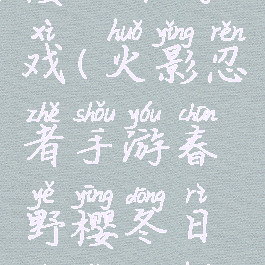 xì huǒ yǐng rěn
戏(火影忍
zhě shǒu yóu chūn
者手游春
yě yīng dōng rì
野樱冬日